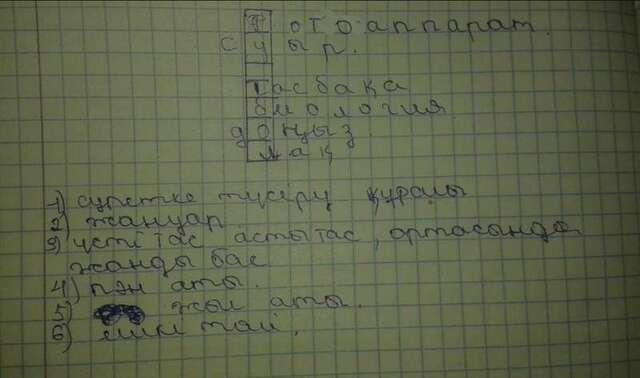 Фотоаппарат.
суыр.
Тасбақа
биология
доңыз
лақ
1) суретке түсіру құралы
2) жануар
3) үсті тас асты тас, ортасында
жанды бас
4) пән аты.
5) жыл аты.
6)